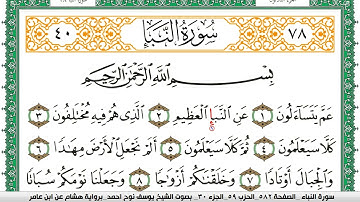 ٧٨ سُورَةُ النَّبَإِ ٤٠
بِسْمِ اللَّهِ الرَّحْمَٰنِ الرَّحِيمِ
عَمَّ يَتَسَآءَلُونَ ١ عَنِ النَّبَإِ الْعَظِيمِ ٢ الَّذِي هُمْ فِيهِ مُخْتَلِفُونَ ٣
كَلَّا سَيَعْلَمُونَ ٤ ثُمَّ كَلَّا سَيَعْلَمُونَ ٥ أَلَمْ نَجْعَلِ الْأَرْضَ مِهَٰدًا ٦
وَالْجِبَالَ أَوْتَادًا ٧ وَخَلَقْنَٰكُمْ أَزْوَٰجًا ٨ وَجَعَلْنَا نَوْمَكُمْ سُبَاتًا
سورة النباء .الصفحة ٥٨٢ .الحزب ٥٩ .الجزء ٣٠ . بصوت الشيخ يوسف نوح احمد .برواية هشام عن ابن عامر